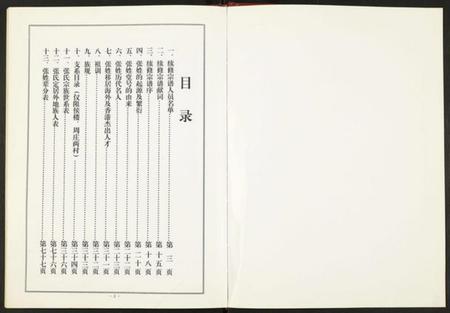 目录
一、续修宗谱人员名单 第三页
二、续修宗谱献词 第十五页
三、续修宗谱序 第十八页
四、张姓的起源及繁衍 第二十页
五、张姓堂号的由来 第二十二页
六、张姓历代名人 第二十三页
七、张姓移居海外及香港杰出人才 第三十一页
八、祖训 第三十二页
九、族规 第三十三页
十、支系目录（仅限侯楼、周庄两村） 第三十四页
十一、张氏宗族世系表 第三十六页
十二、张氏定居外地族人表 第七十六页
十三、张姓辈分表 第七十七页